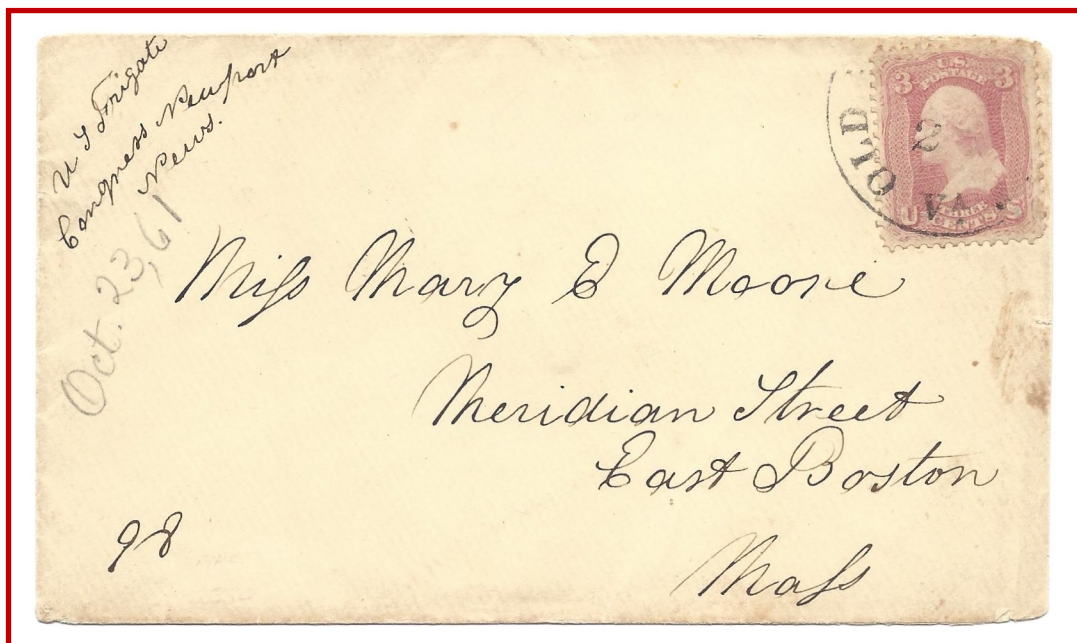 U S Frigate
Congress Newport
News.
Oct. 23, 61
OLD
2
VA.
3 U.S. POSTAGE 3
U THREE CENTS S
Miss Mary E Moore
Meridian Street
East Boston
Mass
98